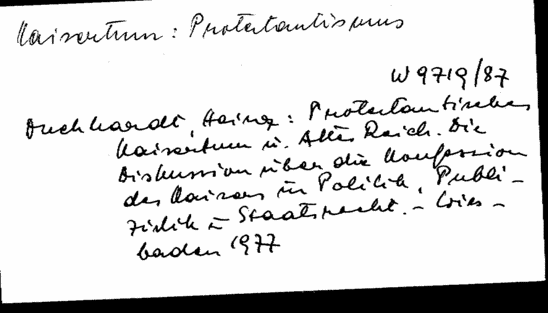 Kaisertum : Protestantismus
W 9719/87
Duchhardt, Heinz : Protestantisches
Kaisertum u. Altes Reich. Die
Diskussion über die Konfession
des Kaisers in Politik, Publi-
zistik u. Staatsrecht. - Wies-
baden 1977